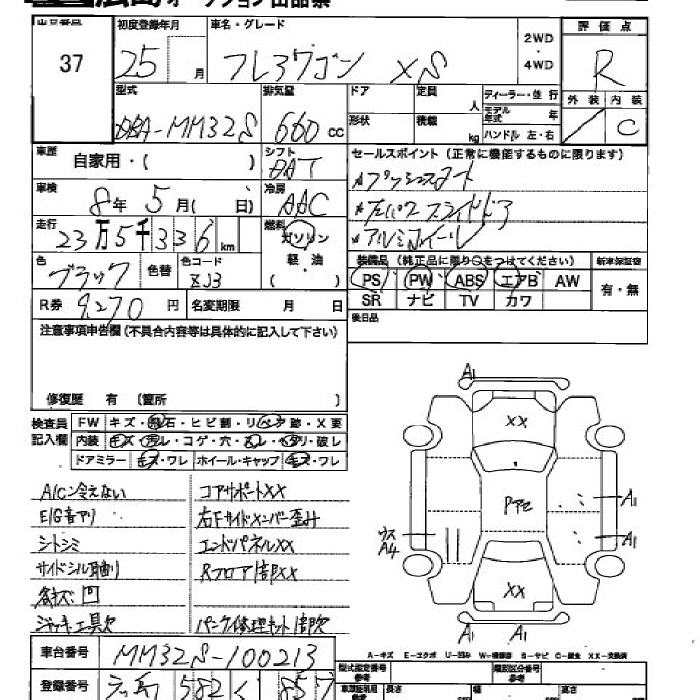 オークション出品票
37
初度登録年月
25 月
車名・グレード
フレアワゴン XS
2WD
・
4WD
評価点
R
外装 内装
C
型式
DBA-MM32S
排気量
660 cc
ドア
形状
定員 人
積載 kg
ディーラー・並行
モデル年式 年
ハンドル 左・右
車歴
自家用・( )
シフト
DAT
セールスポイント (正常に機能するものに限ります)
*プッシュスタート
*左パワースライドドア
*アルミホイール
車検
8年 5月( 日)
冷房
AAC
走行
23万5千336 km
燃料
ガソリン
軽・油
( )
色
ブラック
色替
色コード
ZJ3
装備品 (純正品に限り○をつけてください)
新車保証書
PS PW ABS エアB AW
有・無
SR ナビ TV カワ
R券 9,270 円
名変期限 月 日
後日品
注意事項申告欄(不具合内容等は具体的に記入して下さい)
修復歴 有 (箇所 )
検査員記入欄
FW キズ・飛石・ヒビ割・リペア跡・X要
内装 キズ・汚レ・コゲ・穴・スレ・ヘタリ・破レ
ドアミラー キズ・ワレ ホイール・キャップ キズ・ワレ
A/C冷えない
E/G音アリ
シートシミ
サイドシル軽凹
各キズ凹
ジャッキ工具欠
コアサポートXX
右Fサイドメンバー歪み
エンドパネルXX
Rフロア修XX
パンク修理キット欠
A1
XX
Pアセ
A1
A1
ウス
A4
XX
A1 A1
A-キズ E-エクボ U-凹み W-補修跡 S-サビ C-腐食 XX-交換済
車台番号
MM32S-100213
型式指定番号
参考
類別区分番号
参考
登録番号
582 く 857
長さ
幅
高さ